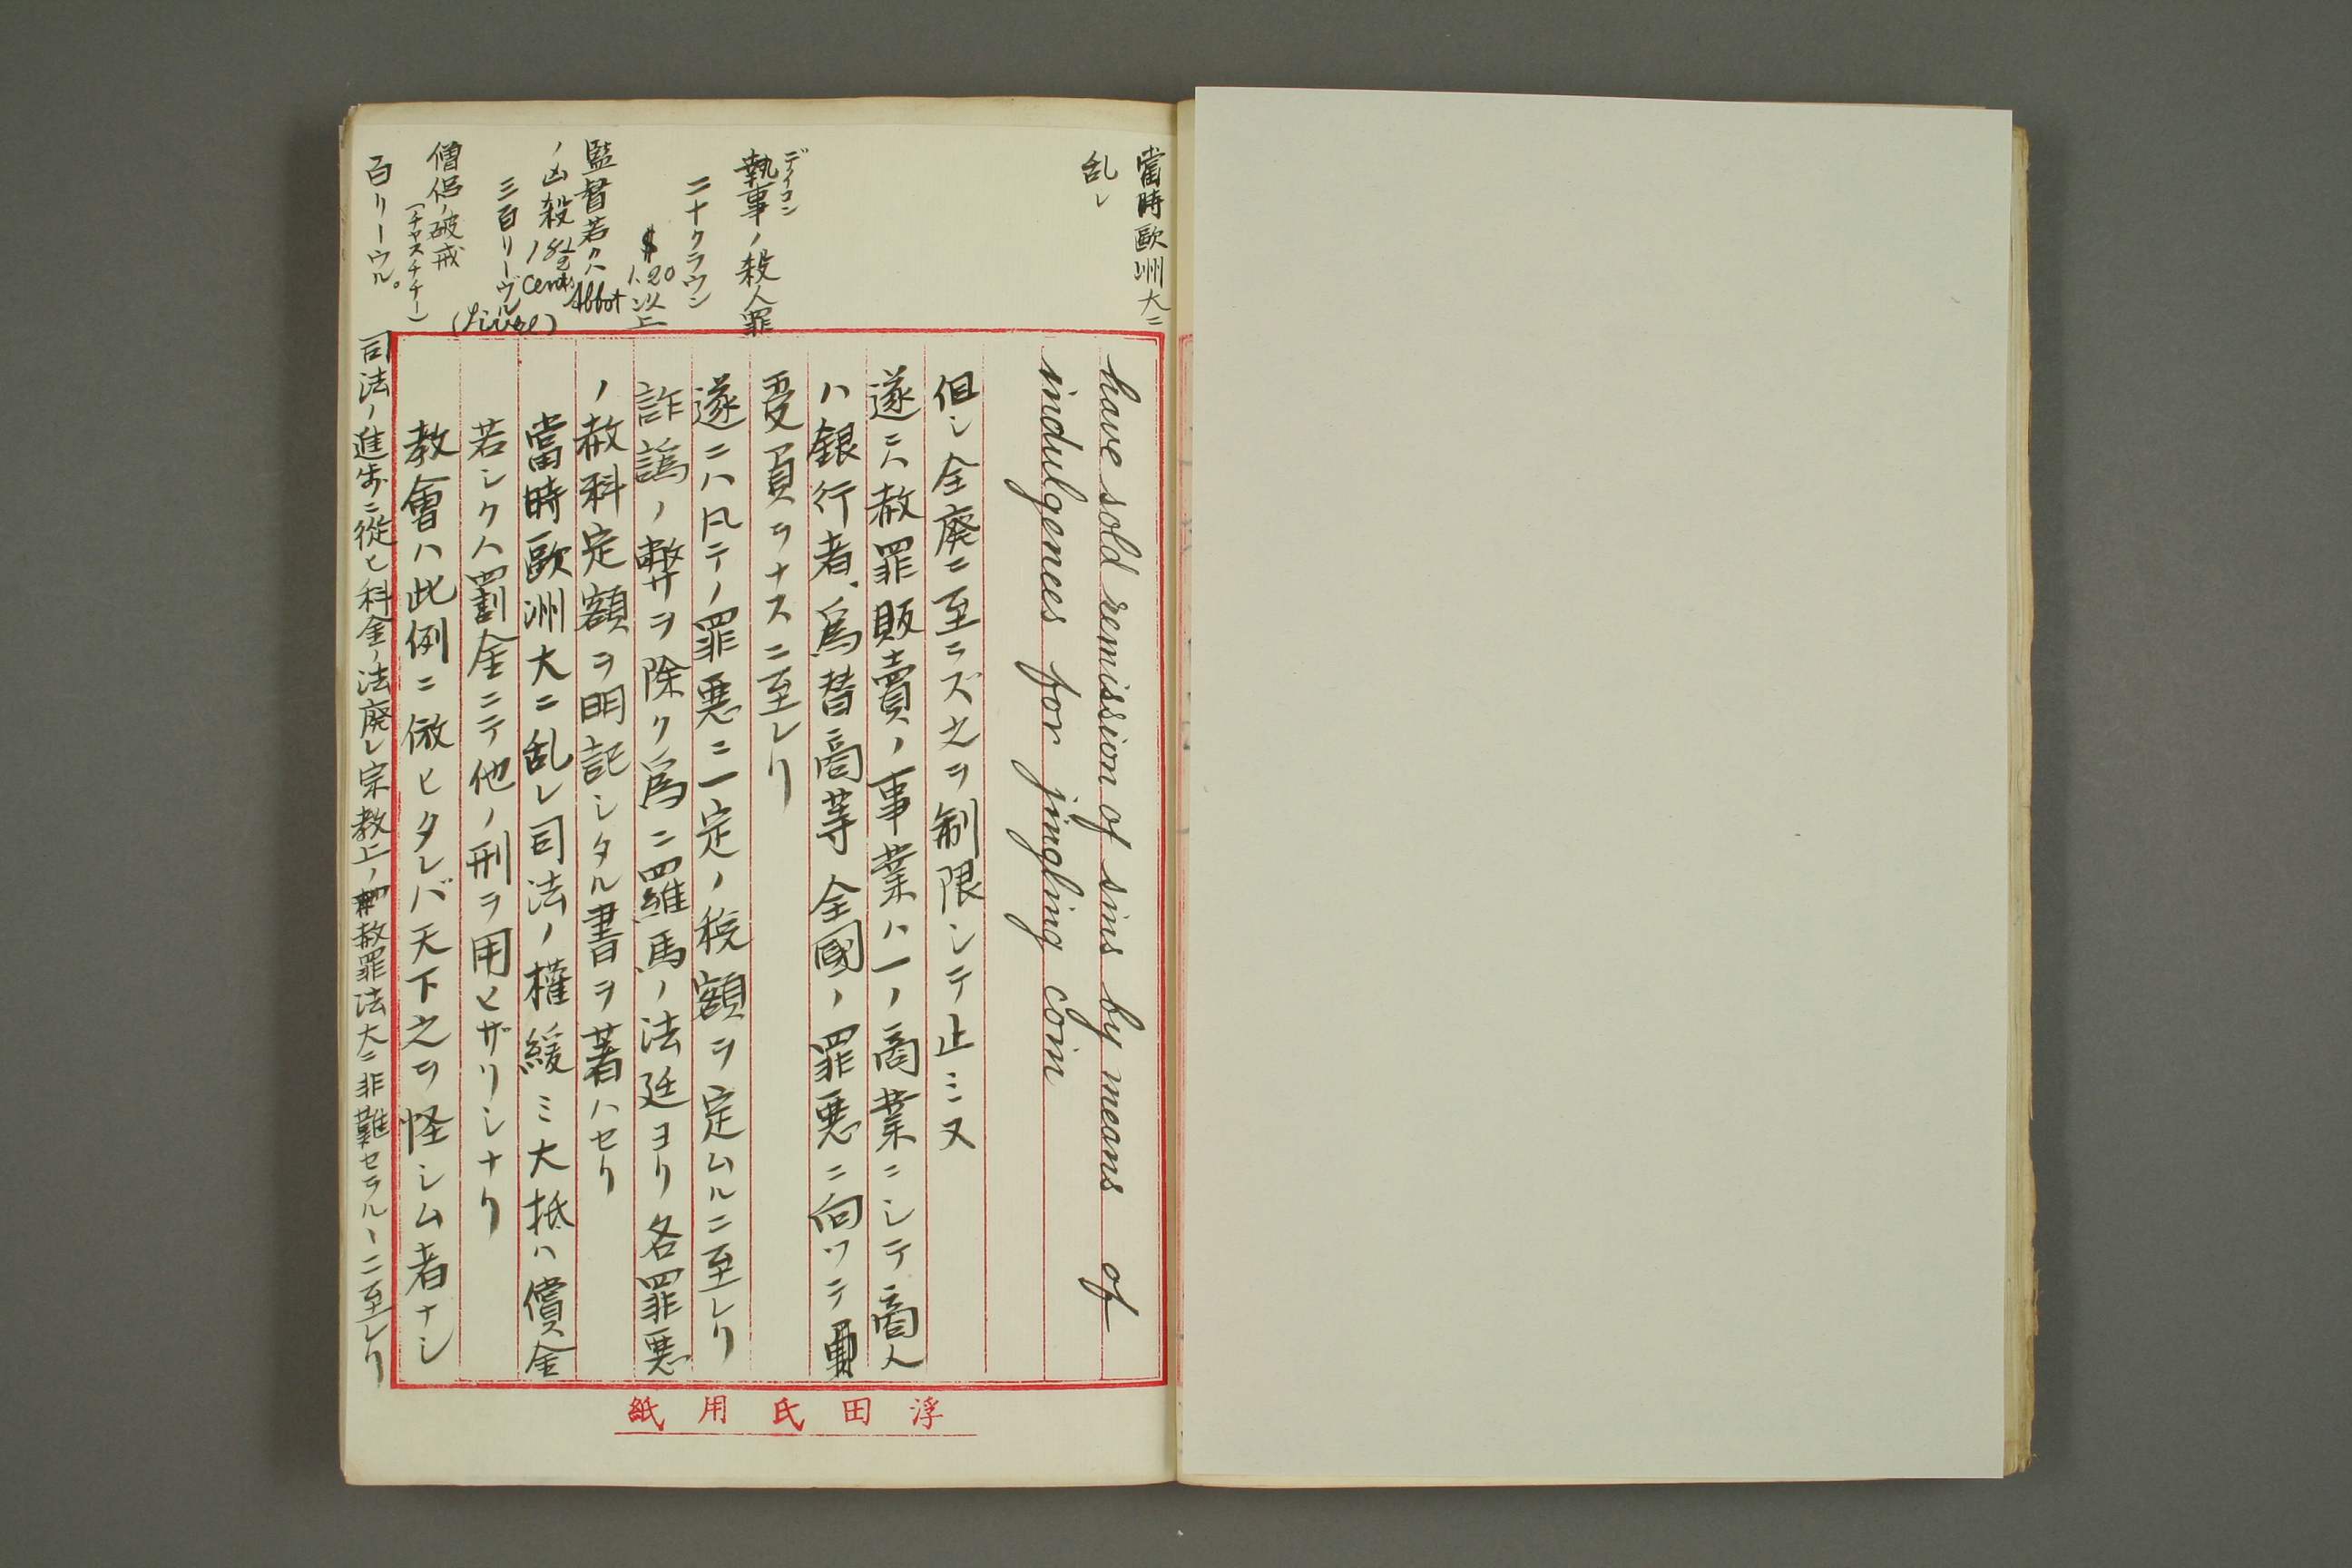 當時歐洲大ニ
乱レ
デイコン
執事ノ殺人罪
二十クラウン
$
1.20
以上
監督若クハ Abbot
ノ凶殺 18½ cents
三百リーヴル
(Livre)
僧侶ノ破戒
(チヤスチチー)
百リーウル。
have sold remission of sins by means of
indulgences for jingling coin
但シ全廃ニ至ラズ之ヲ制限シテ止ミ又
遂ニハ赦罪販賣ノ事業ハ一ノ商業ニシテ商人
ハ銀行者、為替商等全國ノ罪悪ニ向ツテ
受負ヲナスニ至レリ
遂ニハ凡テノ罪悪ニ一定ノ税額ヲ定ムルニ至レリ
詐譌ノ弊ヲ除ク為ニ羅馬ノ法廷ヨリ各罪悪
ノ赦科定額ヲ明記シタル書ヲ著ハセリ
當時歐洲大ニ乱レ司法ノ權緩ミ大抵ハ償金
若シクハ罰金ニテ他ノ刑ヲ用ヒザリシナリ
教會ハ此例ニ倣ヒタレバ天下之ヲ怪シム者ナシ
司法ノ進歩ニ從ヒ科金ノ法廃レ宗教上ノ赦罪法大ニ非難セラルヽニ至レリ
浮田氏用紙